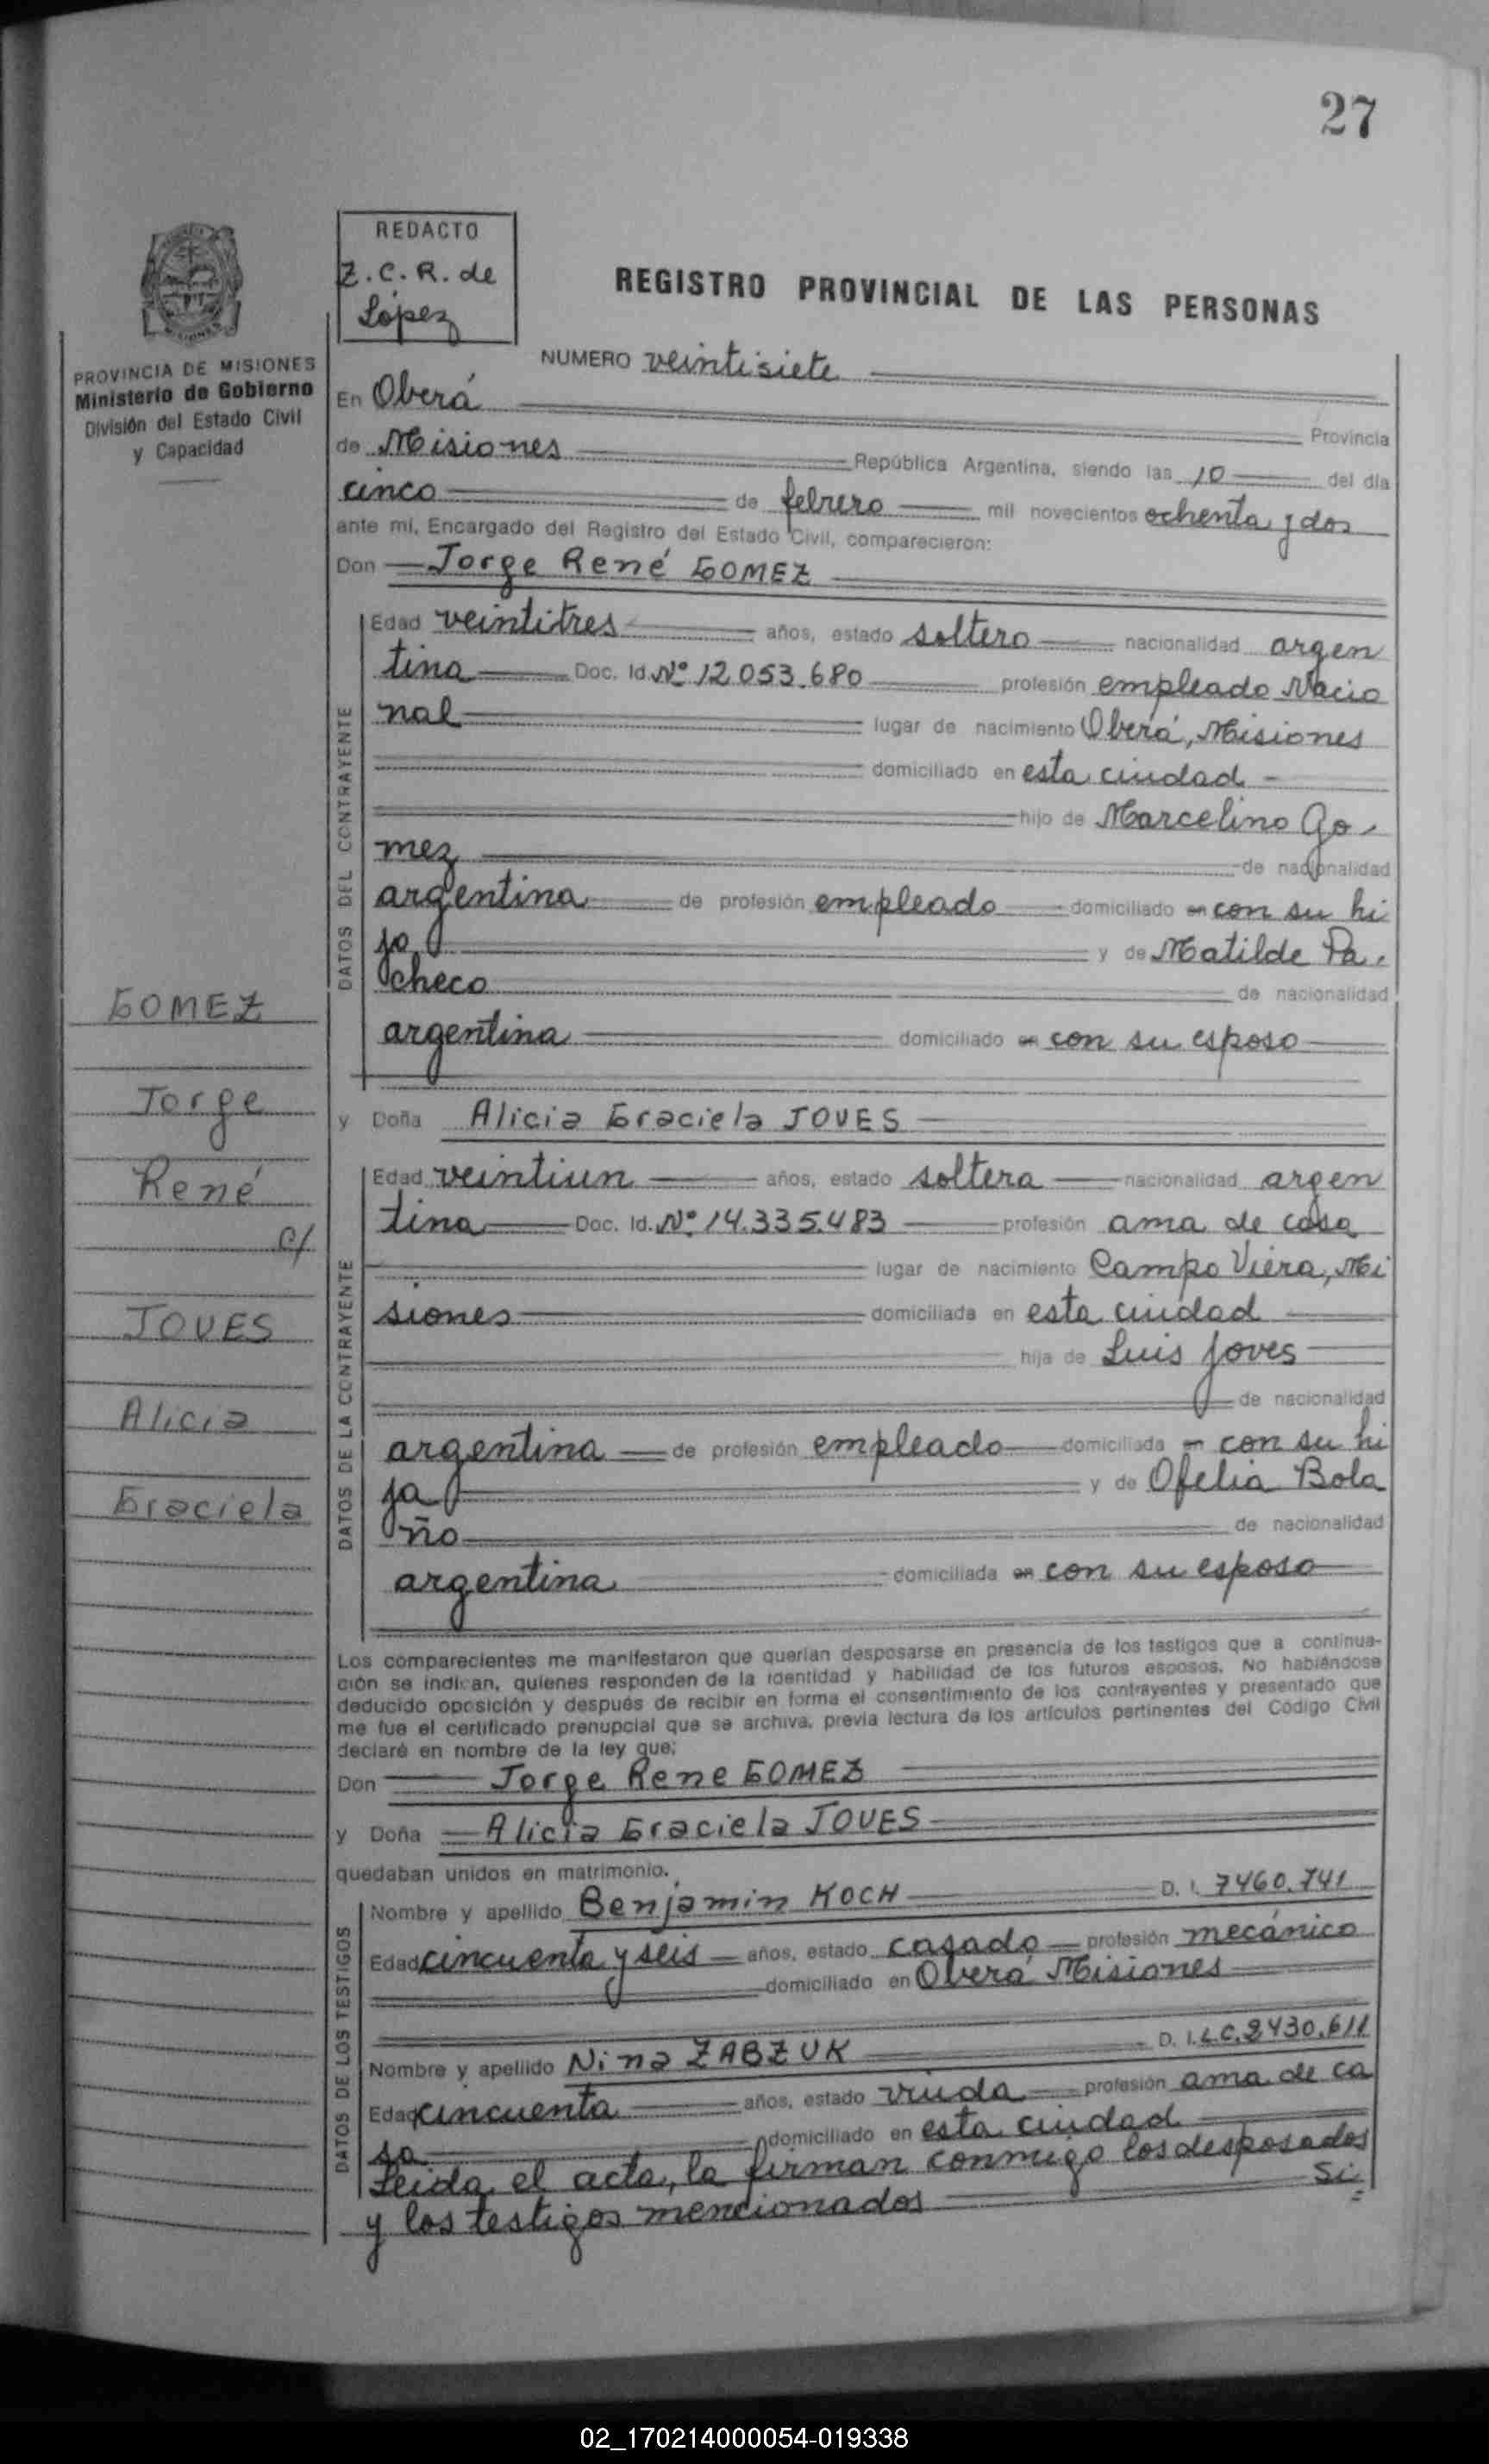 27
REDACTO
Z.C.R. de
López
REGISTRO PROVINCIAL DE LAS PERSONAS
PROVINCIA DE MISIONES
Ministerio de Gobierno
División del Estado Civil
y Capacidad
NUMERO veintisiete
En Oberá Provincia
de Misiones República Argentina, siendo las 10 del día
cinco de febrero mil novecientos ochenta y dos
ante mí, Encargado del Registro del Estado Civil, comparecieron:
Don Jorge René GOMEZ
DATOS DEL CONTRAYENTE
Edad veintitres años, estado soltero nacionalidad argen
tina Doc. Id. Nº 12.053.680 profesión empleado Nacio
nal lugar de nacimiento Oberá, Misiones
domiciliado en esta ciudad -
hijo de Marcelino Go-
mez de nacionalidad
argentina de profesión empleado domiciliado en con su hi
jo y de Matilde Pa-
checo de nacionalidad
argentina domiciliado en con su esposo
y Doña Alicia Graciela JOVES
DATOS DE LA CONTRAYENTE
Edad veintiun años, estado soltera nacionalidad argen
tina Doc. Id. Nº 14.335.483 profesión ama de casa
lugar de nacimiento Campo Viera, Mi
siones domiciliada en esta ciudad
hija de Luis Joves
de nacionalidad
argentina de profesión empleado domiciliada en con su hi
ja y de Ofelia Bola
ño de nacionalidad
argentina domiciliada en con su esposo
GOMEZ
Jorge
René
c/
JOVES
Alicia
Graciela
Los comparecientes me manifestaron que querían desposarse en presencia de los testigos que a continua-
ción se indican, quienes responden de la identidad y habilidad de los futuros esposos. No habiéndose
deducido oposición y después de recibir en forma el consentimiento de los contrayentes y presentado que
me fue el certificado prenupcial que se archiva, previa lectura de los artículos pertinentes del Código Civil
declaré en nombre de la ley que:
Don Jorge Rene GOMEZ
y Doña Alicia Graciela JOVES
quedaban unidos en matrimonio.
DATOS DE LOS TESTIGOS
Nombre y apellido Benjamin KOCH D. I. 7460.741
Edad cincuenta y seis años, estado casado profesión mecánico
domiciliado en Oberá Misiones
Nombre y apellido Nina ZABZUK D. I. L.C. 2430.611
Edad cincuenta años, estado viuda profesión ama de ca
sa domiciliado en esta ciudad
Leida el acta, la firman conmigo los desposados
y los testigos mencionados Si
02_170214000054-019338